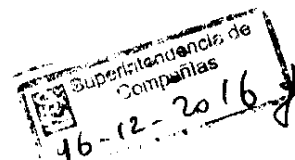 Superintendencia de
Compañías
16-12-2016